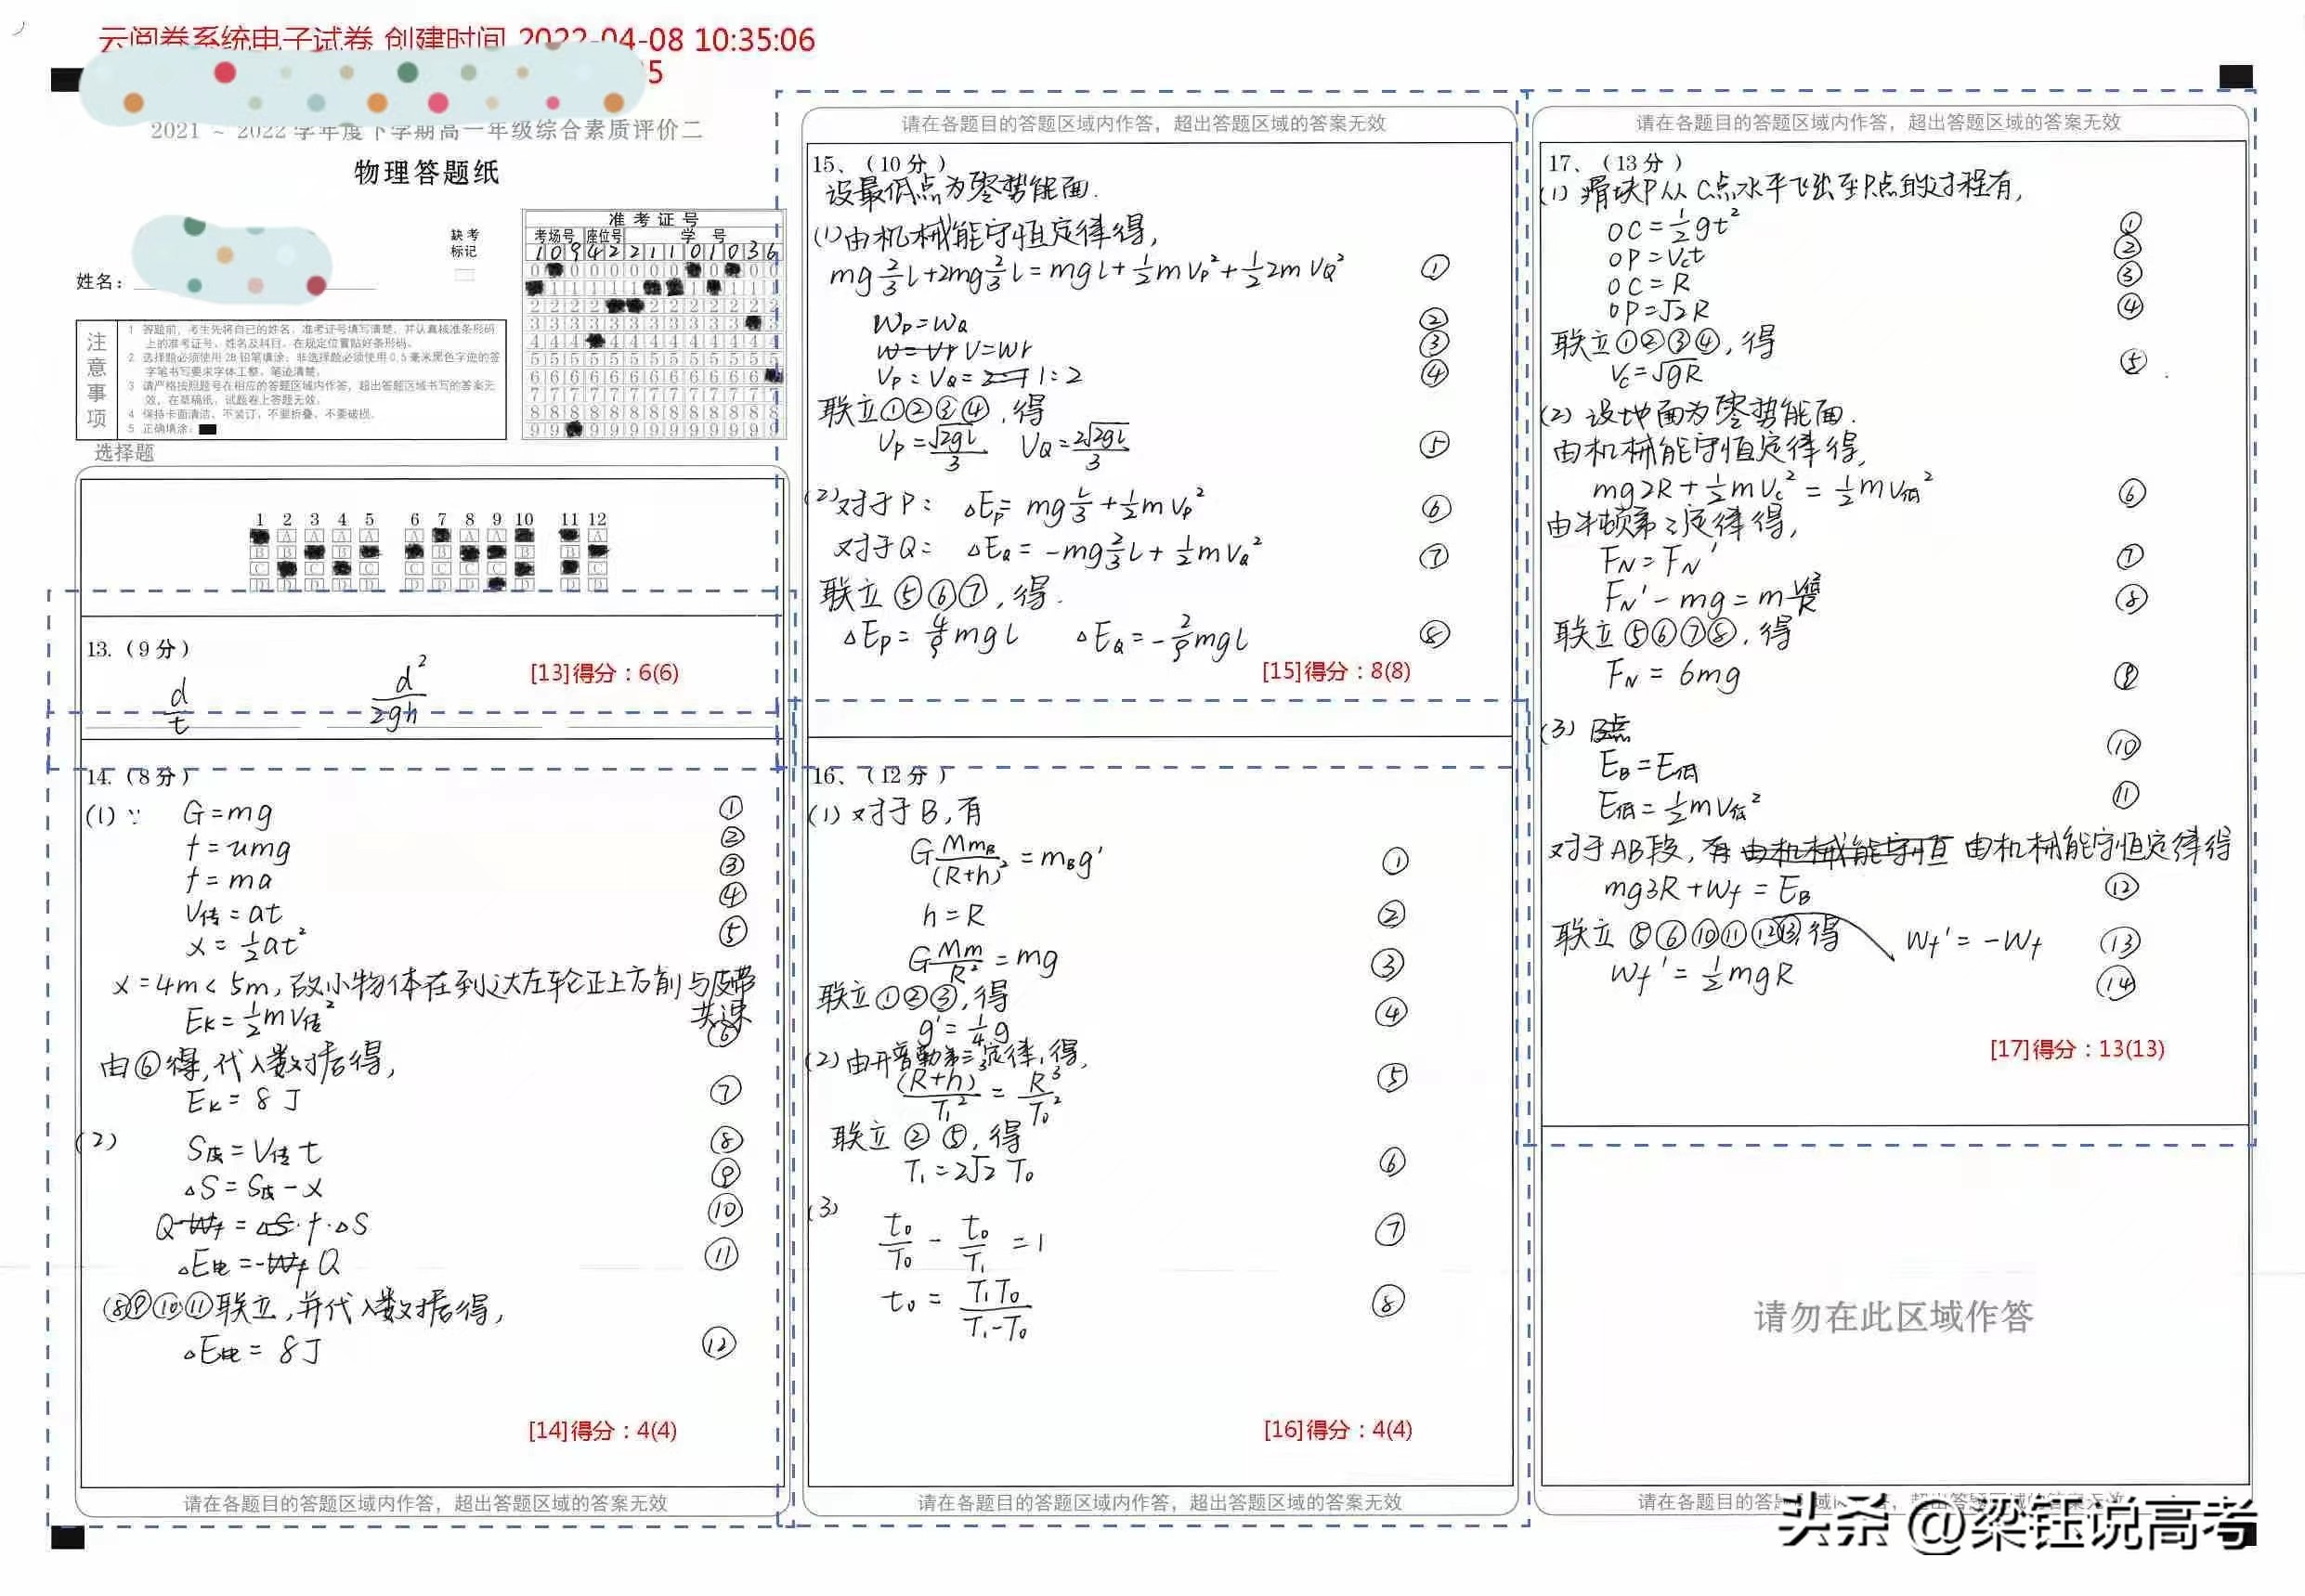 云阅卷系统电子试卷 创建时间 2022-04-08 10:35:06
5
2021 ~ 2022学年度下学期高一年级综合素质评价二
物理答题纸
姓名：
缺考
标记
准考证号
考场号 座位号 学 号
1 0 9 4 2 2 1 1 0 1 0 3 6
注意事项
1 答题前，考生先将自己的姓名、准考证号填写清楚，并认真核准条形码
上的准考证号、姓名及科目，在规定位置贴好条形码。
2 选择题必须使用2B铅笔填涂；非选择题必须使用0.5毫米黑色字迹的签
字笔书写要求字体工整、笔迹清楚。
3 请严格按照题号在相应的答题区域内作答，超出答题区域书写的答案无
效，在草稿纸、试题卷上答题无效。
4 保持卡面清洁、不装订、不要折叠、不要破损。
5 正确填涂：
选择题
1 2 3 4 5 6 7 8 9 10 11 12
13.（9分）
d/t d²/2gh
[13]得分：6(6)
14.（8分）
(1) ∵ G=mg ①
f=umg ②
f=ma ③
V传=at ④
x=½at² ⑤
x=4m<5m，故小物体在到达左轮正上方前与皮带
共速
Ek=½mV传² ⑥
由⑥得，代入数据得，
Ek=8J ⑦
(2) S皮=V传t ⑧
△S=S皮-x ⑨
Q=f·△S ⑩
△E电=Q ⑪
⑧⑨⑩⑪联立，并代入数据得，
△E电=8J ⑫
[14]得分：4(4)
请在各题目的答题区域内作答，超出答题区域的答案无效
请在各题目的答题区域内作答，超出答题区域的答案无效
15、（10分）
设最低点为零势能面.
(1)由机械能守恒定律得，
mg⅔l+2mg⅔l=mgl+½mVP²+½2mVQ² ①
WP=WQ ②
V=Wr ③
VP：VQ=1:2 ④
联立①②③④，得
VP=√2gl/3 VQ=2√2gl/3 ⑤
(2)对于P： △EP=mg l/3+½mVP² ⑥
对于Q： △EQ=-mg⅔l+½mVQ² ⑦
联立⑤⑥⑦，得.
△EP=4/9mgl △EQ=-2/9mgl ⑧
[15]得分：8(8)
16、（12分）
(1)对于B，有
G MmB/(R+h)²=mBg' ①
h=R ②
G Mm/R²=mg ③
联立①②③，得
g'=¼g ④
(2)由开普勒第三定律，得，
(R+h)³/T₁²=R³/T₀² ⑤
联立②⑤，得
T₁=2√2 T₀ ⑥
(3)
t₀/T₀ - t₀/T₁ =1 ⑦
t₀=T₁T₀/(T₁-T₀) ⑧
[16]得分：4(4)
请在各题目的答题区域内作答，超出答题区域的答案无效
请在各题目的答题区域内作答，超出答题区域的答案无效
17、（13分）
(1)滑块P从C点水平飞出至P点的过程有，
OC=½gt² ①
OP=Vct ②
OC=R ③
OP=√2R ④
联立①②③④，得
Vc=√gR ⑤
(2)设地面为零势能面.
由机械能守恒定律得，
mg2R+½mVc²=½mV低² ⑥
由牛顿第二定律得，
FN=FN' ⑦
FN'-mg=m V低²/R ⑧
联立⑤⑥⑦⑧，得
FN=6mg ⑨
(3) B点
EB=E低 ⑩
E低=½mV低² ⑪
对于AB段，有由机械能守恒 由机械能守恒定律得
mg3R+Wf=EB ⑫
联立⑤⑥⑩⑪⑫⑬，得 Wf'=-Wf ⑬
Wf'=½mgR ⑭
[17]得分：13(13)
请勿在此区域作答
头条 @梁钰说高考